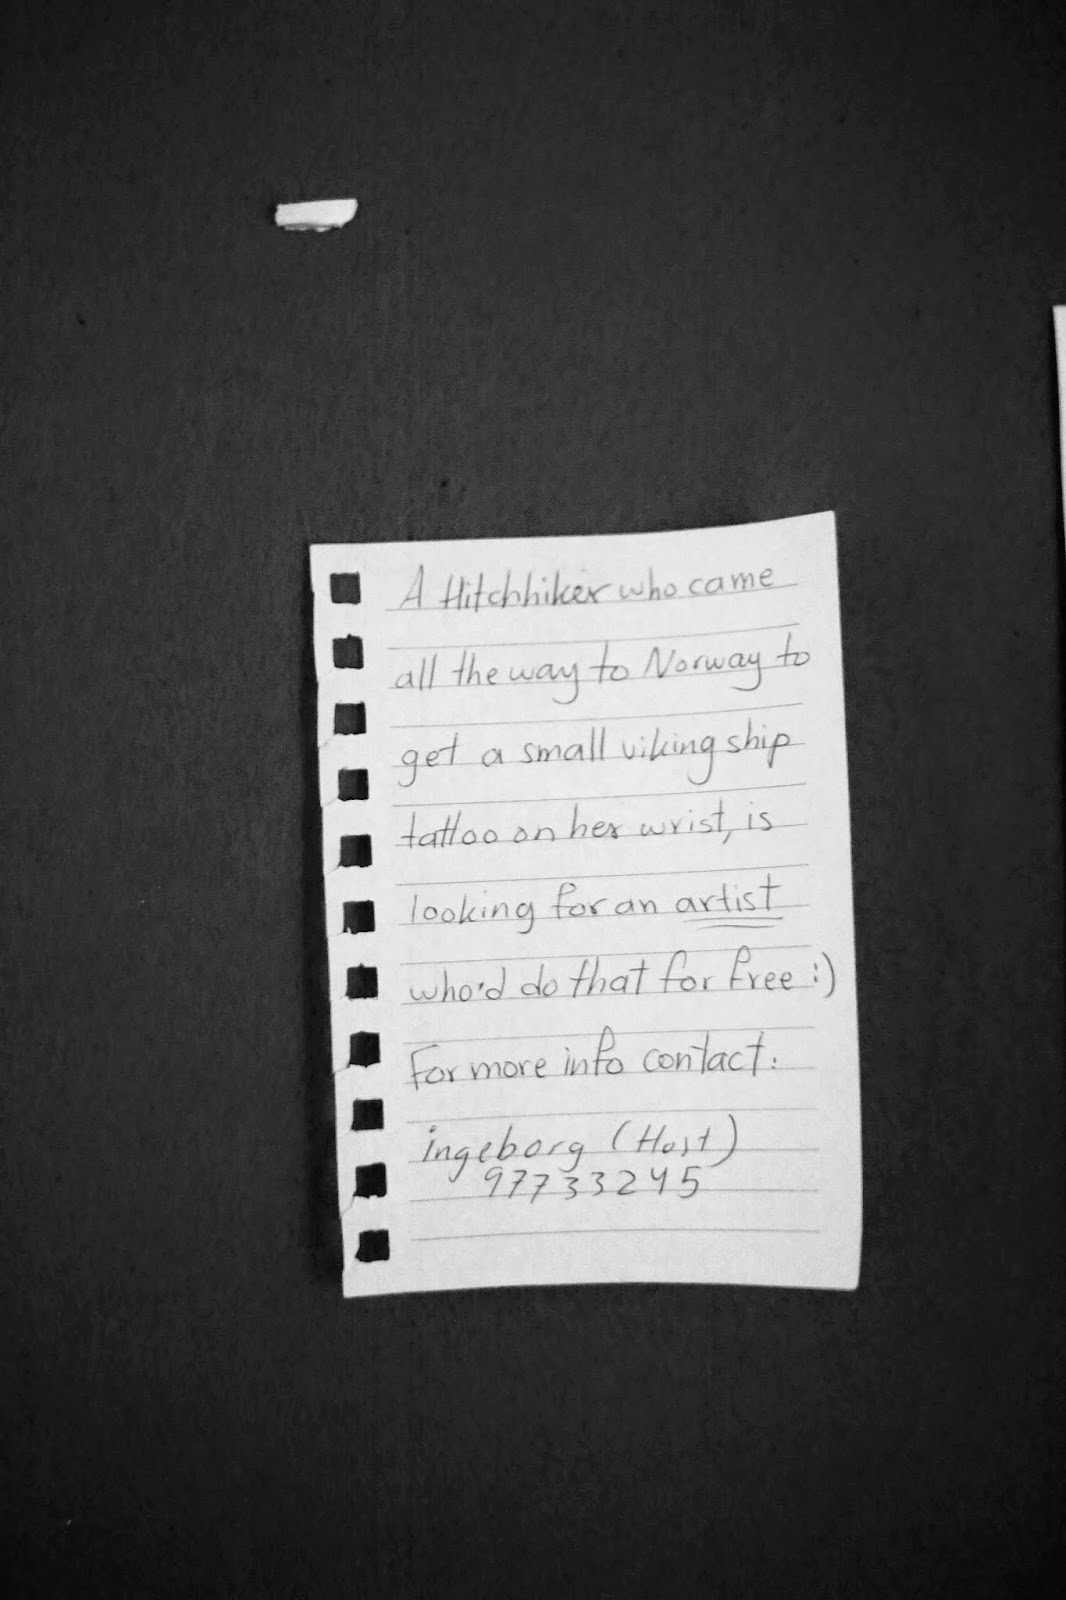 A Hitchhiker who came
all the way to Norway to
get a small viking ship
tattoo on her wrist, is
looking for an artist
who'd do that for free :)
For more info contact:
ingeborg (Host)
97733245